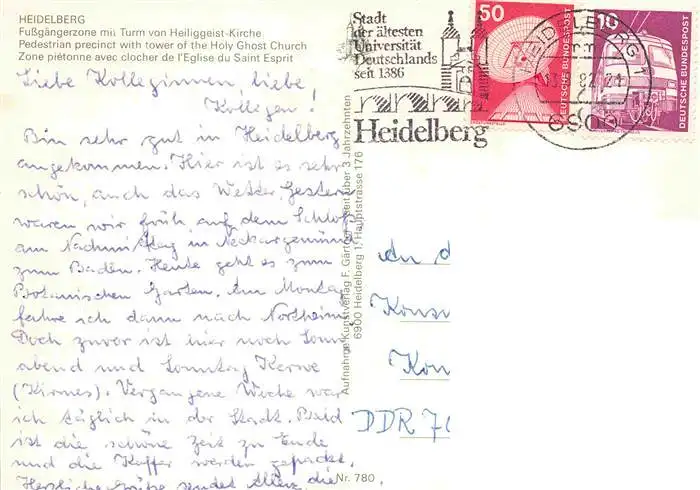 HEIDELBERG
Fußgängerzone mit Turm von Heiliggeist-Kirche
Pedestrian precinct with tower of the Holy Ghost Church
Zone piétonne avec clocher de l'Eglise du Saint Esprit
Liebe Kolleginnen, liebe
Kollegen!
Bin sehr gut in Heidelberg
angekommen. Hier ist es sehr
schön, auch das Wetter. Gestern
waren wir früh auf dem Schloß
am Nachmittag in Neckargemünd
zum Baden. Heute geht es zum
Botanischen Garten. Am Montag
fahre ich dann nach Northeim.
Doch zuvor ist hier noch Sonn-
abend und Sonntag Kerwe
(Kirmes). Vergangene Woche war
ich täglich in der Stadt. Bald
ist die schöne Zeit zu Ende
und die Koffer werden gepackt.
Herzliche Grüße sendet allen die
Aufnahme Kunstverlag F. Seit über 3 Jahrzehnten
6900 Heidelberg 1, Hauptstrasse 176
Nr. 780
Stadt
der ältesten
Universität
Deutschlands
seit 1386
Heidelberg
50
DEUTSCHE BUNDESPOST
10
DEUTSCHE BUNDESPOST
HEIDELBERG 1
An d
Konsu
Kon
DDR 70